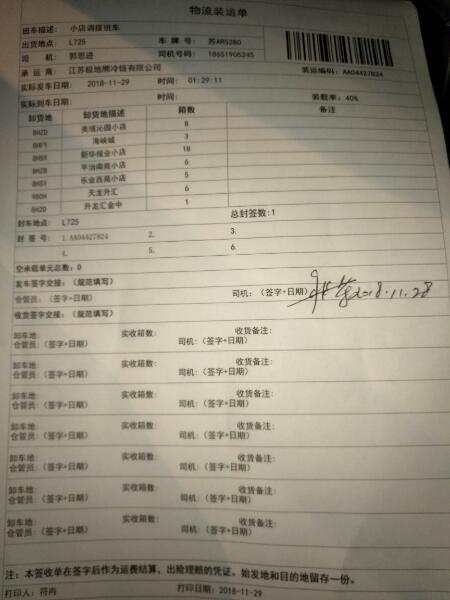 物流装运单
班车描述: 小店调拨班车
出货地点: L725 车 牌 号: 苏AR5280
司 机: 郭思进 司机号码: 18651905245
承 运 商: 江苏极地熊冷链有限公司 装运编码: AA04427824
实际发车日期: 2018-11-29 时间: 01:29:11
实际到车日期: 时间: 装载率: 40%
卸货地 卸货地描述 箱数 备注
8HZD 美域沁园小店 8
8HFY 海峡城 3
新华报业小店 18
8HZB 平治南苑小店 6
8HSY 乐业西苑小店 5
980H 天龙升汇 6
8HZD 升龙汇金中 1
封车地点: L725 总封签数:1
封 签 号: 1.AA04427824 2. 3.
4. 5. 6.
空承载单元总数: 0
发车签字交接: (规范填写)
仓管员: (签字+日期) 司机: (签字+日期) 2018.11.28
收货签字交接: (规范填写)
卸车地: 实收箱数: 收货备注:
仓管员: (签字+日期) 司机: (签字+日期)
卸车地: 实收箱数: 收货备注:
仓管员: (签字+日期) 司机: (签字+日期)
卸车地: 实收箱数: 收货备注:
仓管员: (签字+日期) 司机: (签字+日期)
卸车地: 实收箱数: 收货备注:
仓管员: (签字+日期) 司机: (签字+日期)
卸车地: 实收箱数: 收货备注:
仓管员: (签字+日期) 司机: (签字+日期)
卸车地: 实收箱数: 收货备注:
仓管员: (签字+日期) 司机: (签字+日期)
卸车地: 实收箱数: 收货备注:
仓管员: (签字+日期) 司机: (签字+日期)
注: 本签收单在签字后作为运费结算, 出险理赔的凭证。始发地和目的地留存一份。
打印人: 符冉 打印日期: 2018-11-29